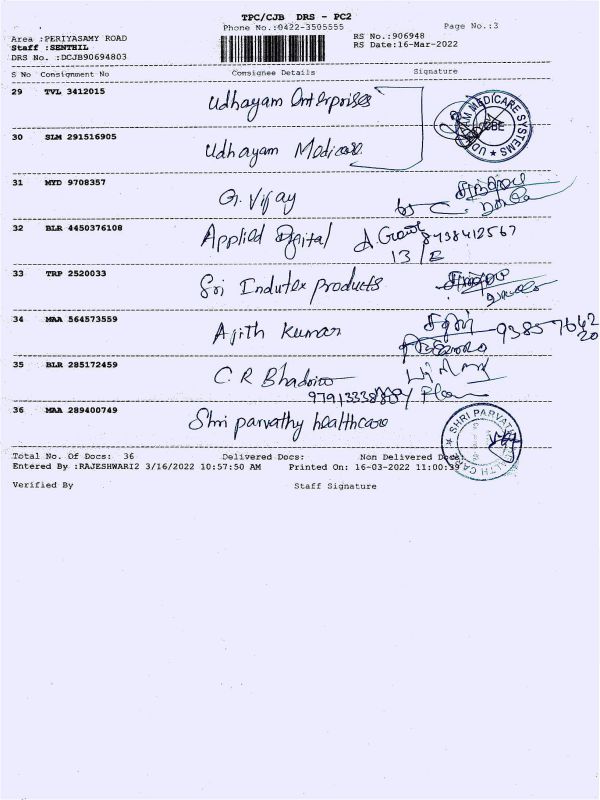 TPC/CJB DRS - PC2
Phone No.:0422-3505555
Page No.:3
Area :PERIYASAMY ROAD
RS No.:906948
Staff :SENTHIL
RS Date:16-Mar-2022
DRS No. :DCJB90694803
S No Consignment No Consignee Details Signature
29 TVL 3412015 Udhayam Enterprises
30 SLM 291516905 Udhayam Medicare
UDHAYAM MEDICARE SYSTEMS ★
CBE
31 MYD 9708357 G. Vijay
32 BLR 4450376108 Applied Digital
8438412567
13/E
33 TRP 2520033 Sri Indutex products
34 MAA 564573559 Ajith Kumar
35 BLR 285172459 C. R Bhadoiao
36 MAA 289400749 Shri parvathy healthcare
★ SHRI PARVATHY HEALTH CARE
Total No. Of Docs: 36 Delivered Docs: Non Delivered Docs:
Entered By :RAJESHWARI2 3/16/2022 10:57:50 AM Printed On: 16-03-2022 11:00:39
Verified By Staff Signature